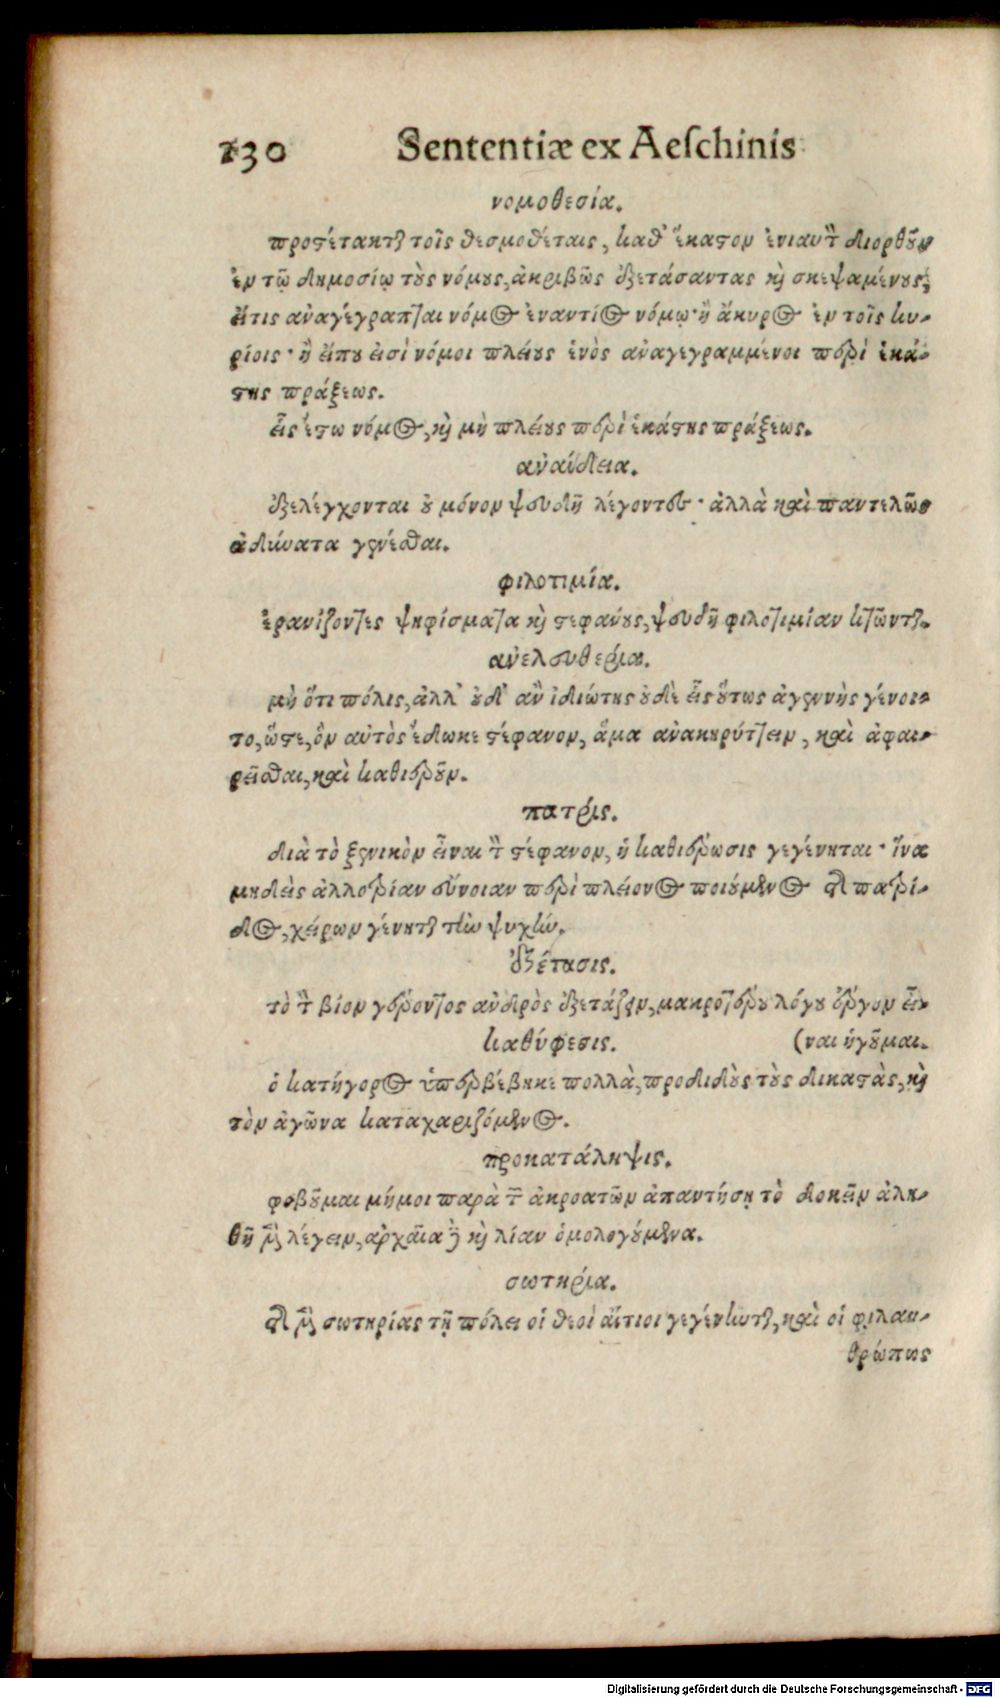 130 Sententiæ ex Aeſchinis
νομοθεσία.
προστέτακται τοῖς θεσμοθέταις, καθ᾽ ἕκαστον ἐνιαυτὸν διορθοῦν
ἐν τῷ δημοσίῳ τοὺς νόμους, ἀκριβῶς ἐξετάσαντας καὶ σκεψαμένους,
εἴ τις ἀναγέγραπται νόμος ἐναντίος νόμῳ· ἢ ἄκυρος ἐν τοῖς κυ-
ρίοις· ἢ εἴ που εἰσὶ νόμοι πλείους ἑνὸς ἀναγεγραμμένοι περὶ ἑκά-
στης πράξεως.
εἷς ἔστω νόμος, καὶ μὴ πλείους περὶ ἑκάστης πράξεως.
ἀναίδεια.
ἐξελέγχονται οὐ μόνον ψευδῆ λέγοντες· ἀλλὰ καὶ παντελῶς
ἀδύνατα γενέσθαι.
φιλοτιμία.
ἐρανίζοντες ψηφίσματα καὶ στεφάνους, ψευδῆ φιλοτιμίαν κτῶνται.
ἀνελευθερία.
μὴ ὅτι πόλις, ἀλλ᾽ οὐδ᾽ ἂν ἰδιώτης οὐδὲ εἷς οὕτως ἀγεννὴς γένοι-
το, ὥστε, ὃν αὐτὸς ἔδωκε στέφανον, ἅμα ἀνακηρύττειν, καὶ ἀφαι-
ρεῖσθαι, καὶ καθιεροῦν.
πατρίς.
διὰ τὸ ξενικὸν εἶναι τὸν στέφανον, ἡ καθιέρωσις γεγένηται· ἵνα
μηδεὶς ἀλλοτρίαν εὔνοιαν περὶ πλείονος ποιούμενος τῆς πατρί-
δος, χείρων γένηται τὴν ψυχήν.
ἐξέτασις.
τὸ τὸν βίον γέροντος ἀνδρὸς ἐξετάζειν, μακροτέρου λόγου ἔργον εἶ-
καθύφεσις. (ναι ἡγοῦμαι.
ὁ κατήγορος ὑπερβέβηκε πολλὰ, προδιδοὺς τοὺς δικαστὰς, καὶ
τὸν ἀγῶνα καταχαριζόμενος.
προκατάληψις.
φοβοῦμαι μή μοι παρὰ τῶν ἀκροατῶν ἀπαντήσῃ τὸ δοκεῖν ἀλη-
θῆ μὲν λέγειν, ἀρχαῖα δὲ καὶ λίαν ὁμολογούμενα.
σωτηρία.
τῆς μὲν σωτηρίας τῇ πόλει οἱ θεοὶ αἴτιοι γεγένηνται, καὶ οἱ φιλαν-
θρώπως
Digitalisierung gefördert durch die Deutsche Forschungsgemeinschaft - DFG